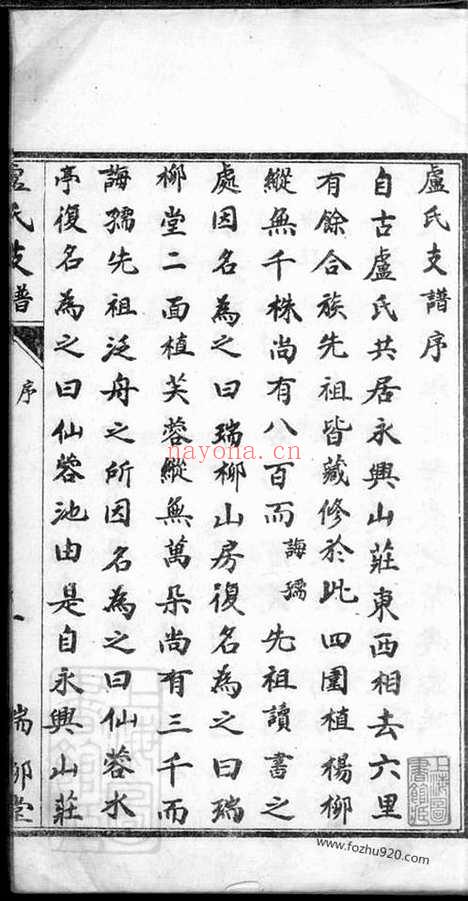 盧氏支譜序
自古盧氏共居永興山莊東西相去六里
有餘合族先祖皆藏修於此四圍植楊柳
縱無千株尚有八百而誨孺先祖讀書之
處因名為之曰瑞柳山房復名為之曰瑞
柳堂二面植芙蓉縱無萬朵尚有三千而
誨孺先祖泛舟之所因名為之曰仙蓉水
亭復名為之曰仙蓉池由是自永興山莊
盧氏支譜
序
一
瑞柳堂
上海圖書館藏
nayona.cn
www.fozhu920.com